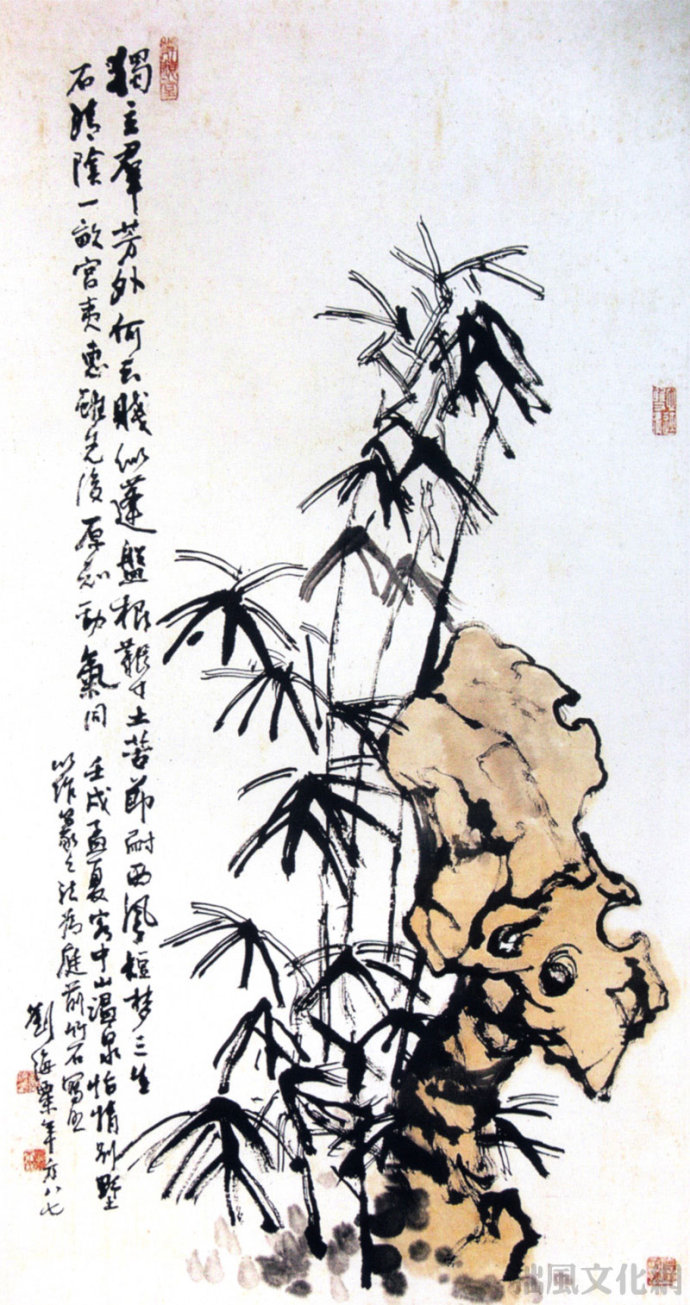 獨立群芳外何云賤似蓬盤根艱寸土苦節耐西風短夢三生
石清陰一畝宮夷惠雖先後原知動氣同
壬戌孟夏客中山溫泉怡情別墅
以作篆之法為庭前竹石寫照
劉海粟年方八七
拙風文化網